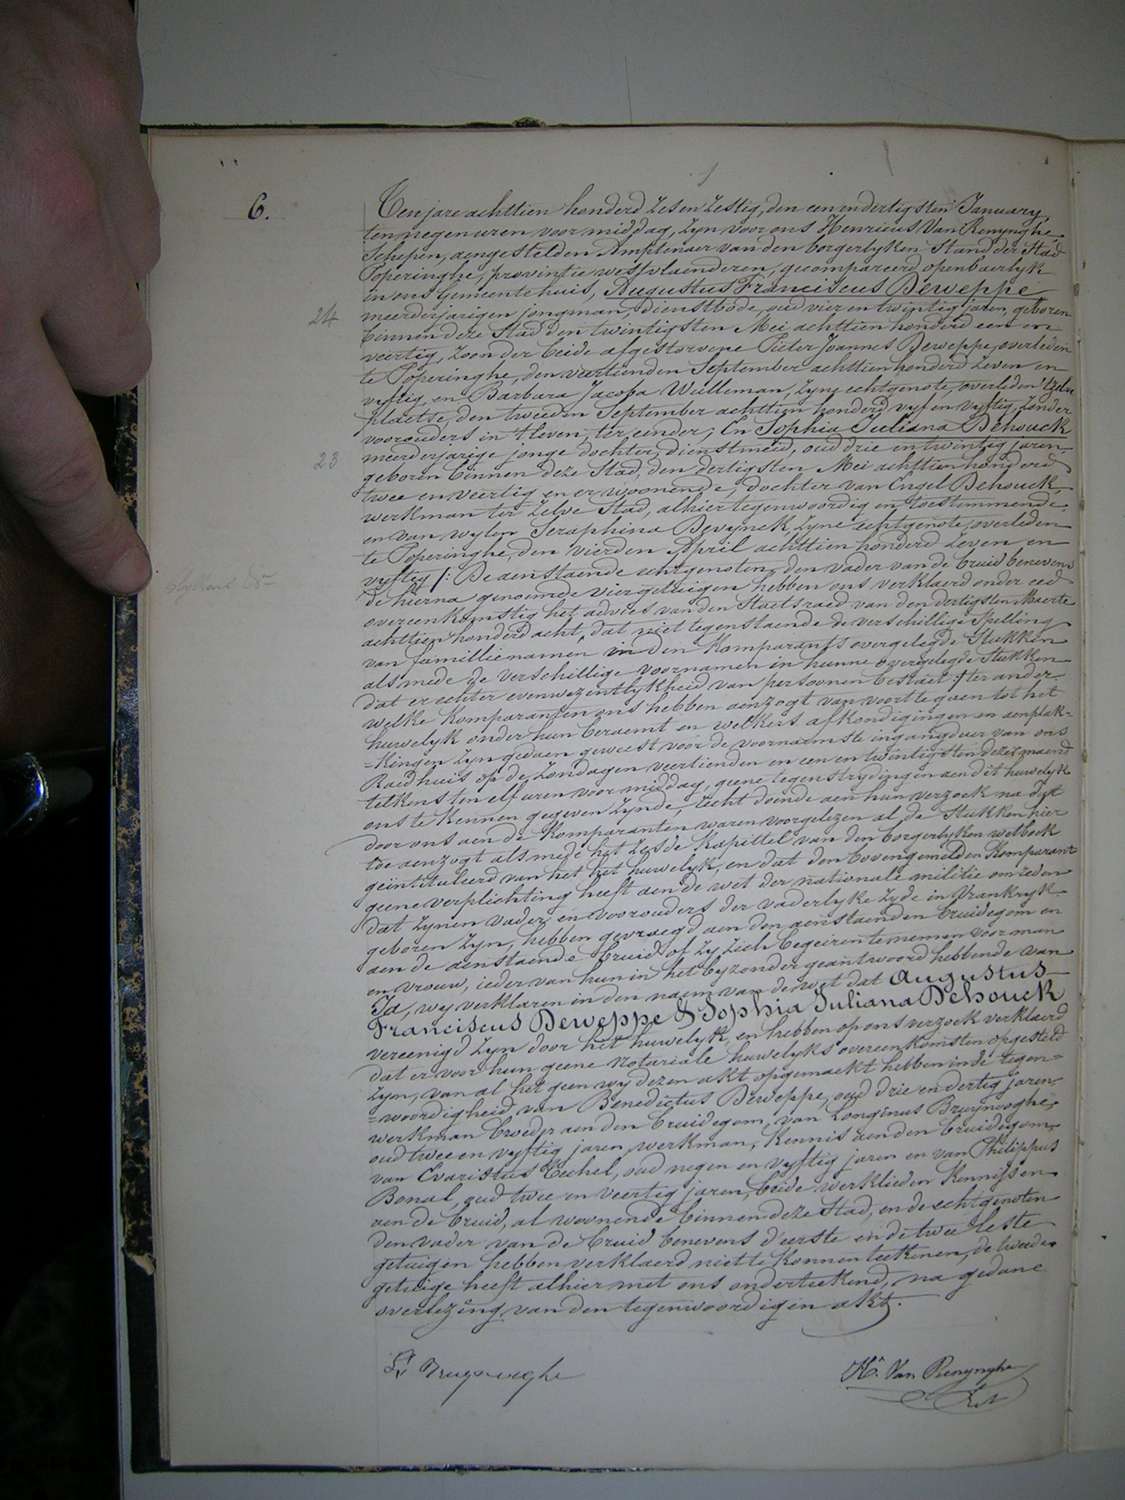 6.
Ten jare achttien honderd zes en zestig, den een en dertigsten January,
ten negen uren voor middag, zyn voor ons Henricus Van Renynghe
Schepen, aengestelden Amptenaer van den borgerlyken Stand der Stad
Poperinghe, provintie westvlaenderen, gecompareerd openbaerlyk
in ons Gemeentehuis, Augustus Franciscus Deweppe
24
meerderjarigen jongman, dienstbode, oud vier en twintig jaren, geboren
binnen deze Stad den twintigsten Mei achttien honderd een en
veertig, zoon der beide afgestorvene Pieter Joannes Deweppe, overleden
te Poperinghe, den veertienden September achttien honderd zeven en
vyftig, en Barbara Jacoba Wulleman, zyne echtgenote, overleden
plaetse, den tweeden September achttien honderd vyf en vyftig, zonder
voorouders in 't leven, ter eender; En Sophia Juliana Dehouck
23
meerderjarige jonge dochter, dienstmeid, oud drie en twintig jaren,
geboren binnen deze Stad, den dertigsten Mei achttien honderd
twee en veertig en er woonende, dochter van Engel Dehouck,
werkman ter zelve Stad, alhier tegenwoordig en toestemmende
en van wylen Seraphina Devynck zyne echtgenote, overleden
te Poperinghe, den vierden April achttien honderd zeven en
vyftig /: De aenstaende echtgenoten, den vader van de bruid benevens
de hierna genoemde vier getuigen hebben ons verklaerd onder eed
overeenkomstig het advies van den Staetsraed van den dertigsten Maerte
achttien honderd acht, dat niet tegenstaende de verschillige spelling
van famillienamen in den Komparants overgelegde Stukken
alsmede de verschillige voornamen in hunne overgelegde Stukken
dat er echter evenwezentlykheid van persoonen bestaet :/ ter ander
welke Komparanten ons hebben aenzogt van voort te gaen tot het
huwelyk onder hun beraemt en welkers afkondigingen en aenplak-
-kingen zyn gedaen geweest voor de voornaemste ingangdeur van ons
Raedhuis op de Zondagen veertienden en een en twintigsten dezer maend
telkens ten elf uren voor middag, gene tegenstrydingen aen dit huwelyk
ons te kennen gegeven zynde, recht doende aen hun verzoek na dat
door ons aen de Komparanten waren voorgelezen al de Stukken hier
toe aenzogt alsmede het zesde Kapittel van den borgerlyken wetboek
geintituleerd van het huwelyk, en dat den bovengemelden Komparant
geene verplichting heeft aen de wet der nationale militie om reden
dat zynen vader en voorouders der vaderlyke zyde in Vrankryk
geboren zyn, hebben gevraegd aen den aenstaenden bruidegom en
aen de aenstaende bruid of zy zich begeiren te nemen voor man
en vrouw, ieder van hun in het byzonder geantwoord hebbende van
Ja, wy verklaren in den naem van de wet dat Augustus
Franciscus Deweppe & Sophia Juliana Dehouck
vereenigd zyn door het huwelyk, en hebben op ons verzoek verklaerd
dat er voor hun geene Notariale huwelyks overeenkomsten opgesteld
zyn, van al het geen wy dezen akt opgemaekt hebben in de tegen=
=woordigheid van Benedictus Deweppe, oud drie en dertig jaren,
werkman broeder aen den bruidegom, van Longinus Bruynooghe,
oud twee en vyftig jaren, werkman, Kennis aen den bruidegom,
van Evaristus Cechel, oud negen en vyftig jaren en van Philippus
Bonal, oud twee en veertig jaren, beide werklieden Kennissen
aen de bruid, al woonende binnen deze Stad, en de echtgenoten
den vader van de bruid benevens d'eerste en de twee leste
getuigen hebben verklaerd niet te konnen teekenen, de tweede
getuige heeft alhier met ons onderteekend, na gedane
overlezing van den tegenwoordigen akt.
Bruynooghe
Hs. Van Renynghe